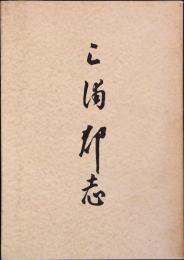 三浦郡志